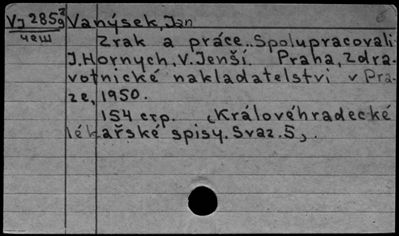 Vj 285 2/9 Vanýsek, Jan
чеш
Zrak a práce.. Spolupracovali
J. Hornych, V. Jenší. Praha, Zdra-
votnické nakladatelství v Pra-
ze, 1950.
154 стр. (Královéhradecké
lékařské spisy. Svaz. 5).